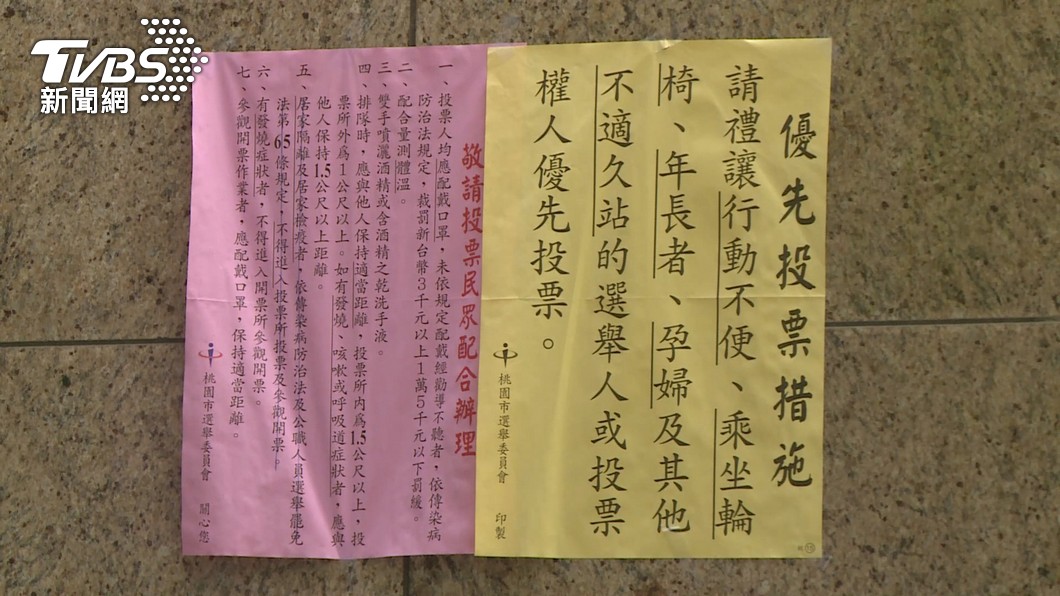 TVBS
新聞網
優先投票措施
請禮讓行動不便、乘坐輪
椅、年長者、孕婦及其他
不適久站的選舉人或投票
權人優先投票。
桃園市選舉委員會 印製
敬請投票民眾配合辦理
一、投票人均應配戴口罩，未依規定配戴經勸導不聽者，依傳染病
防治法規定，裁罰新台幣3千元以上1萬5千元以下罰緩。
二、配合量測體溫。
三、雙手噴灑酒精或含酒精之乾洗手液。
四、排隊時，應與他人保持適當距離，投票所內為1.5公尺以上，投
票所外為1公尺以上。如有發燒、咳嗽或呼吸道症狀者，應與
他人保持1.5公尺以上距離。
五、居家隔離及居家檢疫者，依傳染病防治法及公職人員選舉罷免
法第65條規定，不得進入投票所投票及參觀開票。
六、有發燒症狀者，不得進入開票所參觀開票。
七、參觀開票作業者，應配戴口罩，保持適當距離。
桃園市選舉委員會 關心您